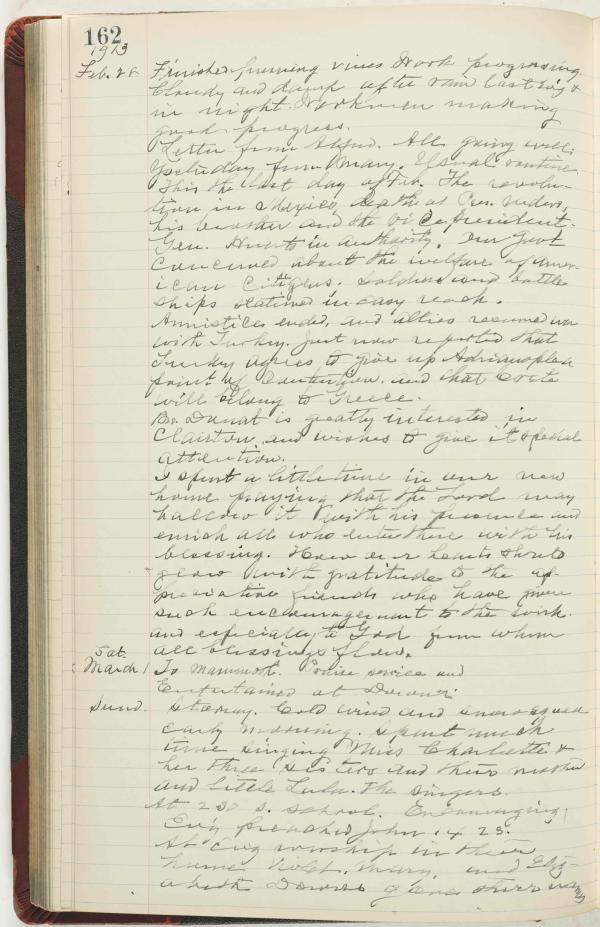 162
1913
Feb. 28 Finished pruning vines Work progressing.
Cloudy and damp after rain last ev'g &
in night. Workmen making
good progress.
Letter from Alfred. All going well;
Yesterday from Mary. Usual routine.
This the last day of Feb. The revolu-
tion in Mexico, death of Pres. Madero,
his brother and the vice president.
Gen. Huerta in authority. Our Govt
concerned about the welfare of Amer-
ican Citizens. Soldiers and battle
ships stationed in easy reach.
Armistice ended, and allies resumed war
with Turkey. Just now reported that
Turkey agrees to give up Adrianople
point of contention. and that Crete
will belong to Greece.
Bro. is greatly interested in
Clairton and wishes to give it special
attention.
I spent a little time in our new
home praying that the Lord may
hallow it with his presence and
enrich all who enter there with his
blessing. How our hearts should
glow with gratitude to the ap-
preciative friends who have given
such encouragement to the work
and especially to God from whom
all blessings flow.
Sat.
March 1 To Mammoth. Praise service and
Entertained at
Sund. Stormy. Cold wind and snow
early morning. Spent much
time singing Miss Charlotte &
her three sisters and their mother
and little Lula. The singers.
At 2 30 S. School. Encouraging;
Ev'g preached John 14 23.
At Ev'g worship in their
home Violet, Mary, and Eliz-
abeth gave their